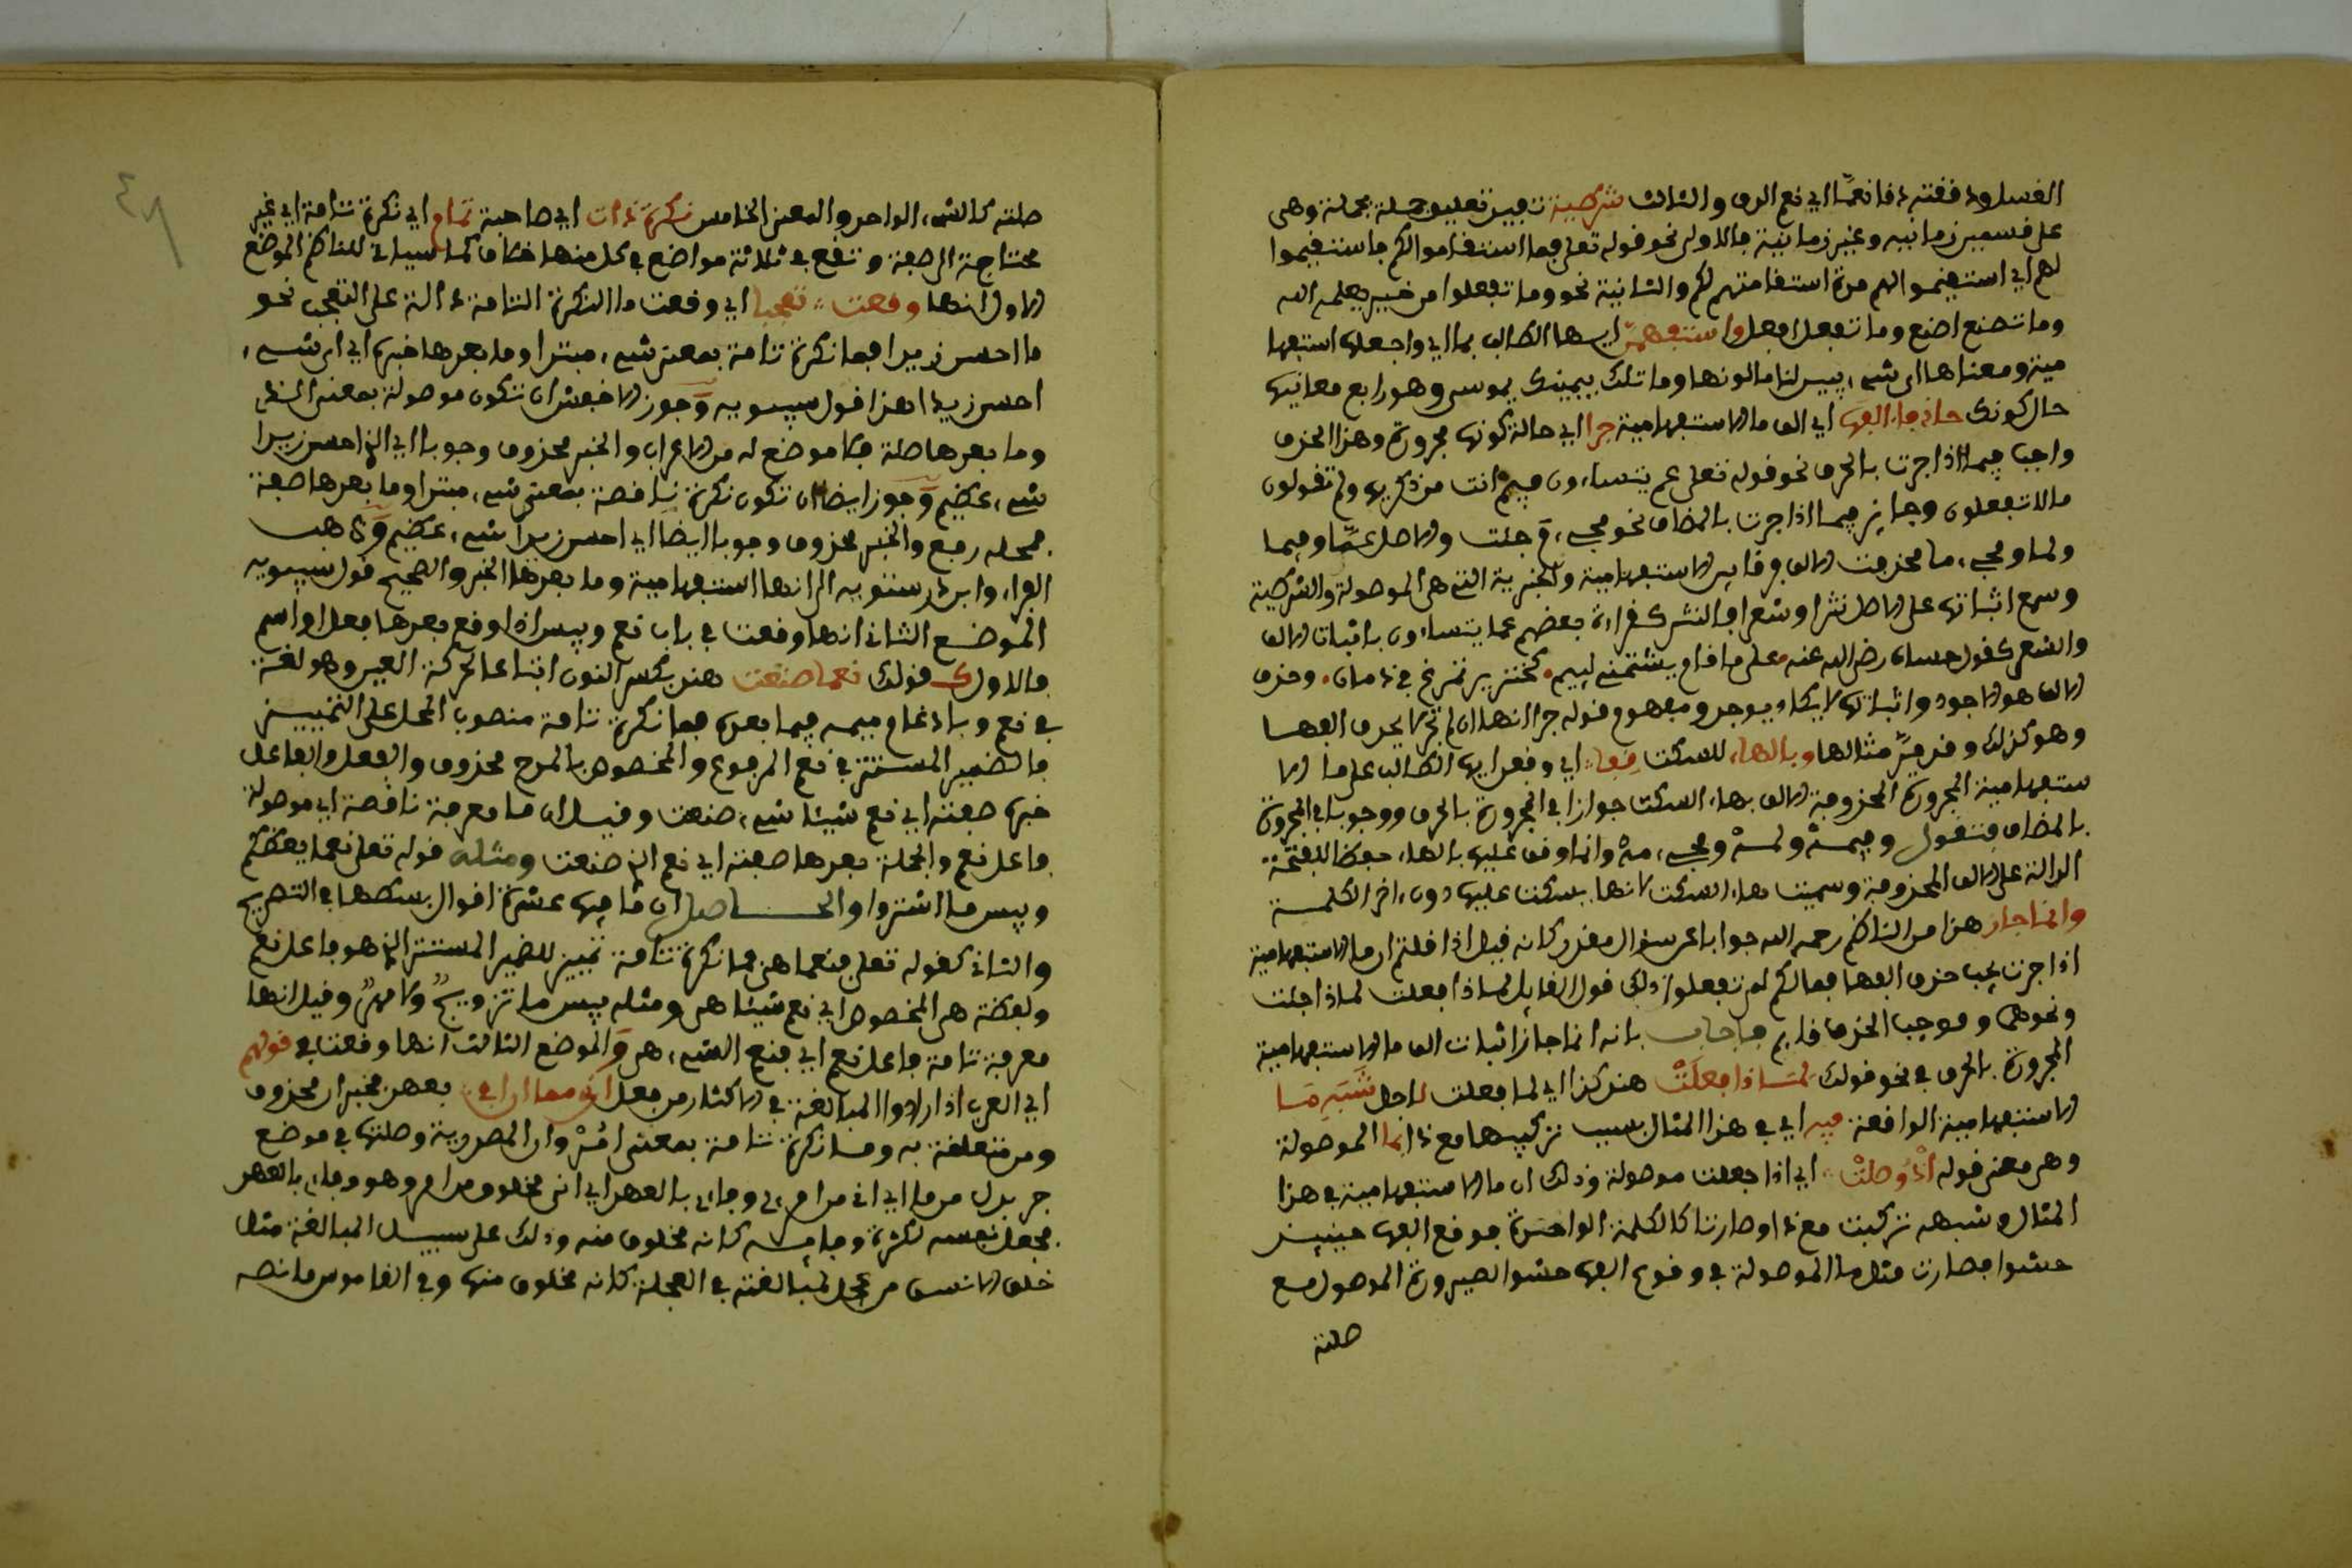 الغسل ودققته دقا نعمّا اي نعم الدق والثالث شرطية تفيد تعليق جملة بجملة وهي
على قسمين زمانيه وغير زمانية فالاولى نحو قوله تعلى فما استقاموا لكم فاستقيموا
لهم اي استقيموا لهم مدة استقامتهم لكم والثانية نحو وما تفعلوا من خير يعلمه الله
وما تصنع اصنع وما تفعل افعل واستفهمن ايها الطالب بما اي واجعلها استفها
مية ومعناها اي شيء يبين لنا ما لونها وما تلك بيمينك يموسى وهو رابع معانيها
حال كونك حاذفا الفها اي الف ما الاستفهامية جرا اي حالة كونها مجرورة وهذا الحذف
واجب فيما اذا جرت بالحرف نحو قوله تعلى عم يتساءلون فيم انت من ذكريها ولم تقولون
ما لا تفعلون وجايز فيما اذا جرت بالمضاف نحو مجيء م جئت والاصل عمّا وفيما
ولما ومجيء ما فحذفت الالف فرقا بين الاستفهامية والخبرية التي هي الموصولة والشرطية
وسمع اثباتها على الاصل نثرا وشعرا فالنثر كقراءة بعضهم عما يتساءلون باثبات الالف
والشعر كقول حسان رضي الله عنه على ما قام يشتمني لييم كخنزير تمرغ في دمان وحذف
الالف هو الاجود واثباتها لا يكاد يوجد ومفهوم قوله جرا انها ان لم تجر لا يحذف الفها
وهو كذلك وقد مرّ مثالها وبالهاء للسكت قفا اي وقف ايها الطالب على ما الا
ستفهامية المجرورة المحذوفة الالف بهاء السكت جوازا في المجرورة بالحرف ووجوبا في المجرورة
بالمضاف فتقول وفيمهْ ولمهْ ومجيء مهْ وانما وقف عليها بالهاء حفظا للفتحة
الدالة على الالف المحذوفة وسميت هاء السكت لانها يسكت عليها دون اخر الكلمة
وانما جاز هذا من الناظم رحمه الله جوابا عن سؤال مقدر كانه قيل اذا قلتم ان ما الاستفهامية
اذا جرت يجب حذف الفها فما لكم لم تفعلوا ذلك في قول القايل لماذا فعلت لماذا جئت
ونحوهما وموجب الحذف قايم فاجاب بانه انما جاز اثبات الف ما الاستفهامية
المجرورة بالحرف في نحو قولك لمَاذا فعلَتْ هند كذا اي لما فعلت لاجل شَبَهِ مَا
الاستفهامية الواقعة فيه اي في هذا المثال بسبب تركيبها مع ذا انما الموصولة
وهي معنى قوله اذْ وُصِلَتْ اي اذا جعلت موصولة وذلك ان ما الاستفهامية في هذا
المثال وشبهه تركبت مع ذا وصارتا كالكلمة الواحدة فوقع الفها حينيذ
حشوا فصارت مثل ما الموصولة في وقوع الفها حشوا لصيرورة الموصول مع
صلته
صلته كالشيء الواحد والمعنى الخامس نكرةً ذات اي صاحبة تمام اي نكرة تامة اي غير
محتاجة الى صفة وتقع في ثلاثة مواضع في كل منها خلاف كما سياتي للناظم الموضع
الاول انها وقعت تعجبا اي وقعت ما النكرة التامة دالة على التعجب نحو
ما احسن زيدا فما نكرة تامة بمعنى شيء مبتدا وما بعدها خبره اي اي شيء
احسن زيدا هذا قول سيبويه وجوز الاخفش ان تكون موصولة بمعنى الذي
وما بعدها صلة فلا موضع له من الاعراب والخبر محذوف وجوبا اي الذي احسن زيدا
شيء عظيم وجوز ايضا ان تكون نكرة ناقصة بمعنى شيء مبتدا وما بعدها صفة
فمحله رفع والخبر محذوف وجوبا ايضا اي احسن زيدا شيء عظيم وذهب
الفراء وابن درستويه الى انها استفهامية وما بعدها الخبر والصحيح قول سيبويه
الموضع الثاني انها وقعت في باب نعم وبيس اذا وقع بعدها فعل او اسم
فالاول كـ قولك نعما صنعت هند بكسر النون اتباعا لحركة العين وهو لغة
في نعم وبادغام ميمه فيما بعده فما نكرة تامة منصوب المحل على التمييز
فالضمير المستتر في نعم المرفوع والمخصوص بالمدح محذوف والفعل والفاعل
خبره صفته اي نعم شيئا شيء صنعت وقيل ان ما معرفة ناقصة اي موصولة
فاعل نعم والجملة بعدها صفته اي نعم الذي صنعت ومثله قوله تعلى نعما يعظكم
وبيس ما اشتروا والحاصل ان ما فيها عشرة اقوال بسطها في التصريح
والثاني كقوله تعلى فنعما هي فما نكرة تامة تمييز للضمير المستتر الذي هو فاعل نعم
ولفظة هي المخصوص اي نعم شيئا هي ومثله بيس ما تزويج ولا مهر وقيل انها
معرفة تامة فاعل نعم اي فنعم الشيء هي والموضع الثالث انها وقعت في قولهم
اي العرب اذا ارادوا المبالغة في الاكثار من فعل اني مما ان افي بعهد فخبر ان محذوف
ومن متعلقة به وما نكرة تامة بمعنى امْرْ وان المصدرية وصلتها في موضع
جر بدل من ما اي اني من امر اي وفاي بالعهد اي اني مخلوق من امر وهو وفاي بالعهد
فجعل نفسه لكثرة وفايه كانه مخلوق منه وذلك على سبيل المبالغة مثل
خلق الانسن من عجل لمبالغته في العجلة كانه مخلوق منها وفي القاموس ما نصه